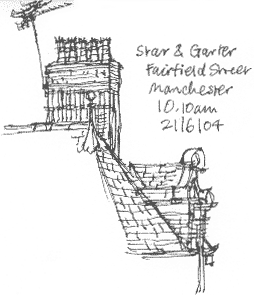 Star & Garter
Fairfield Street
Manchester
10.10am
21/6/04